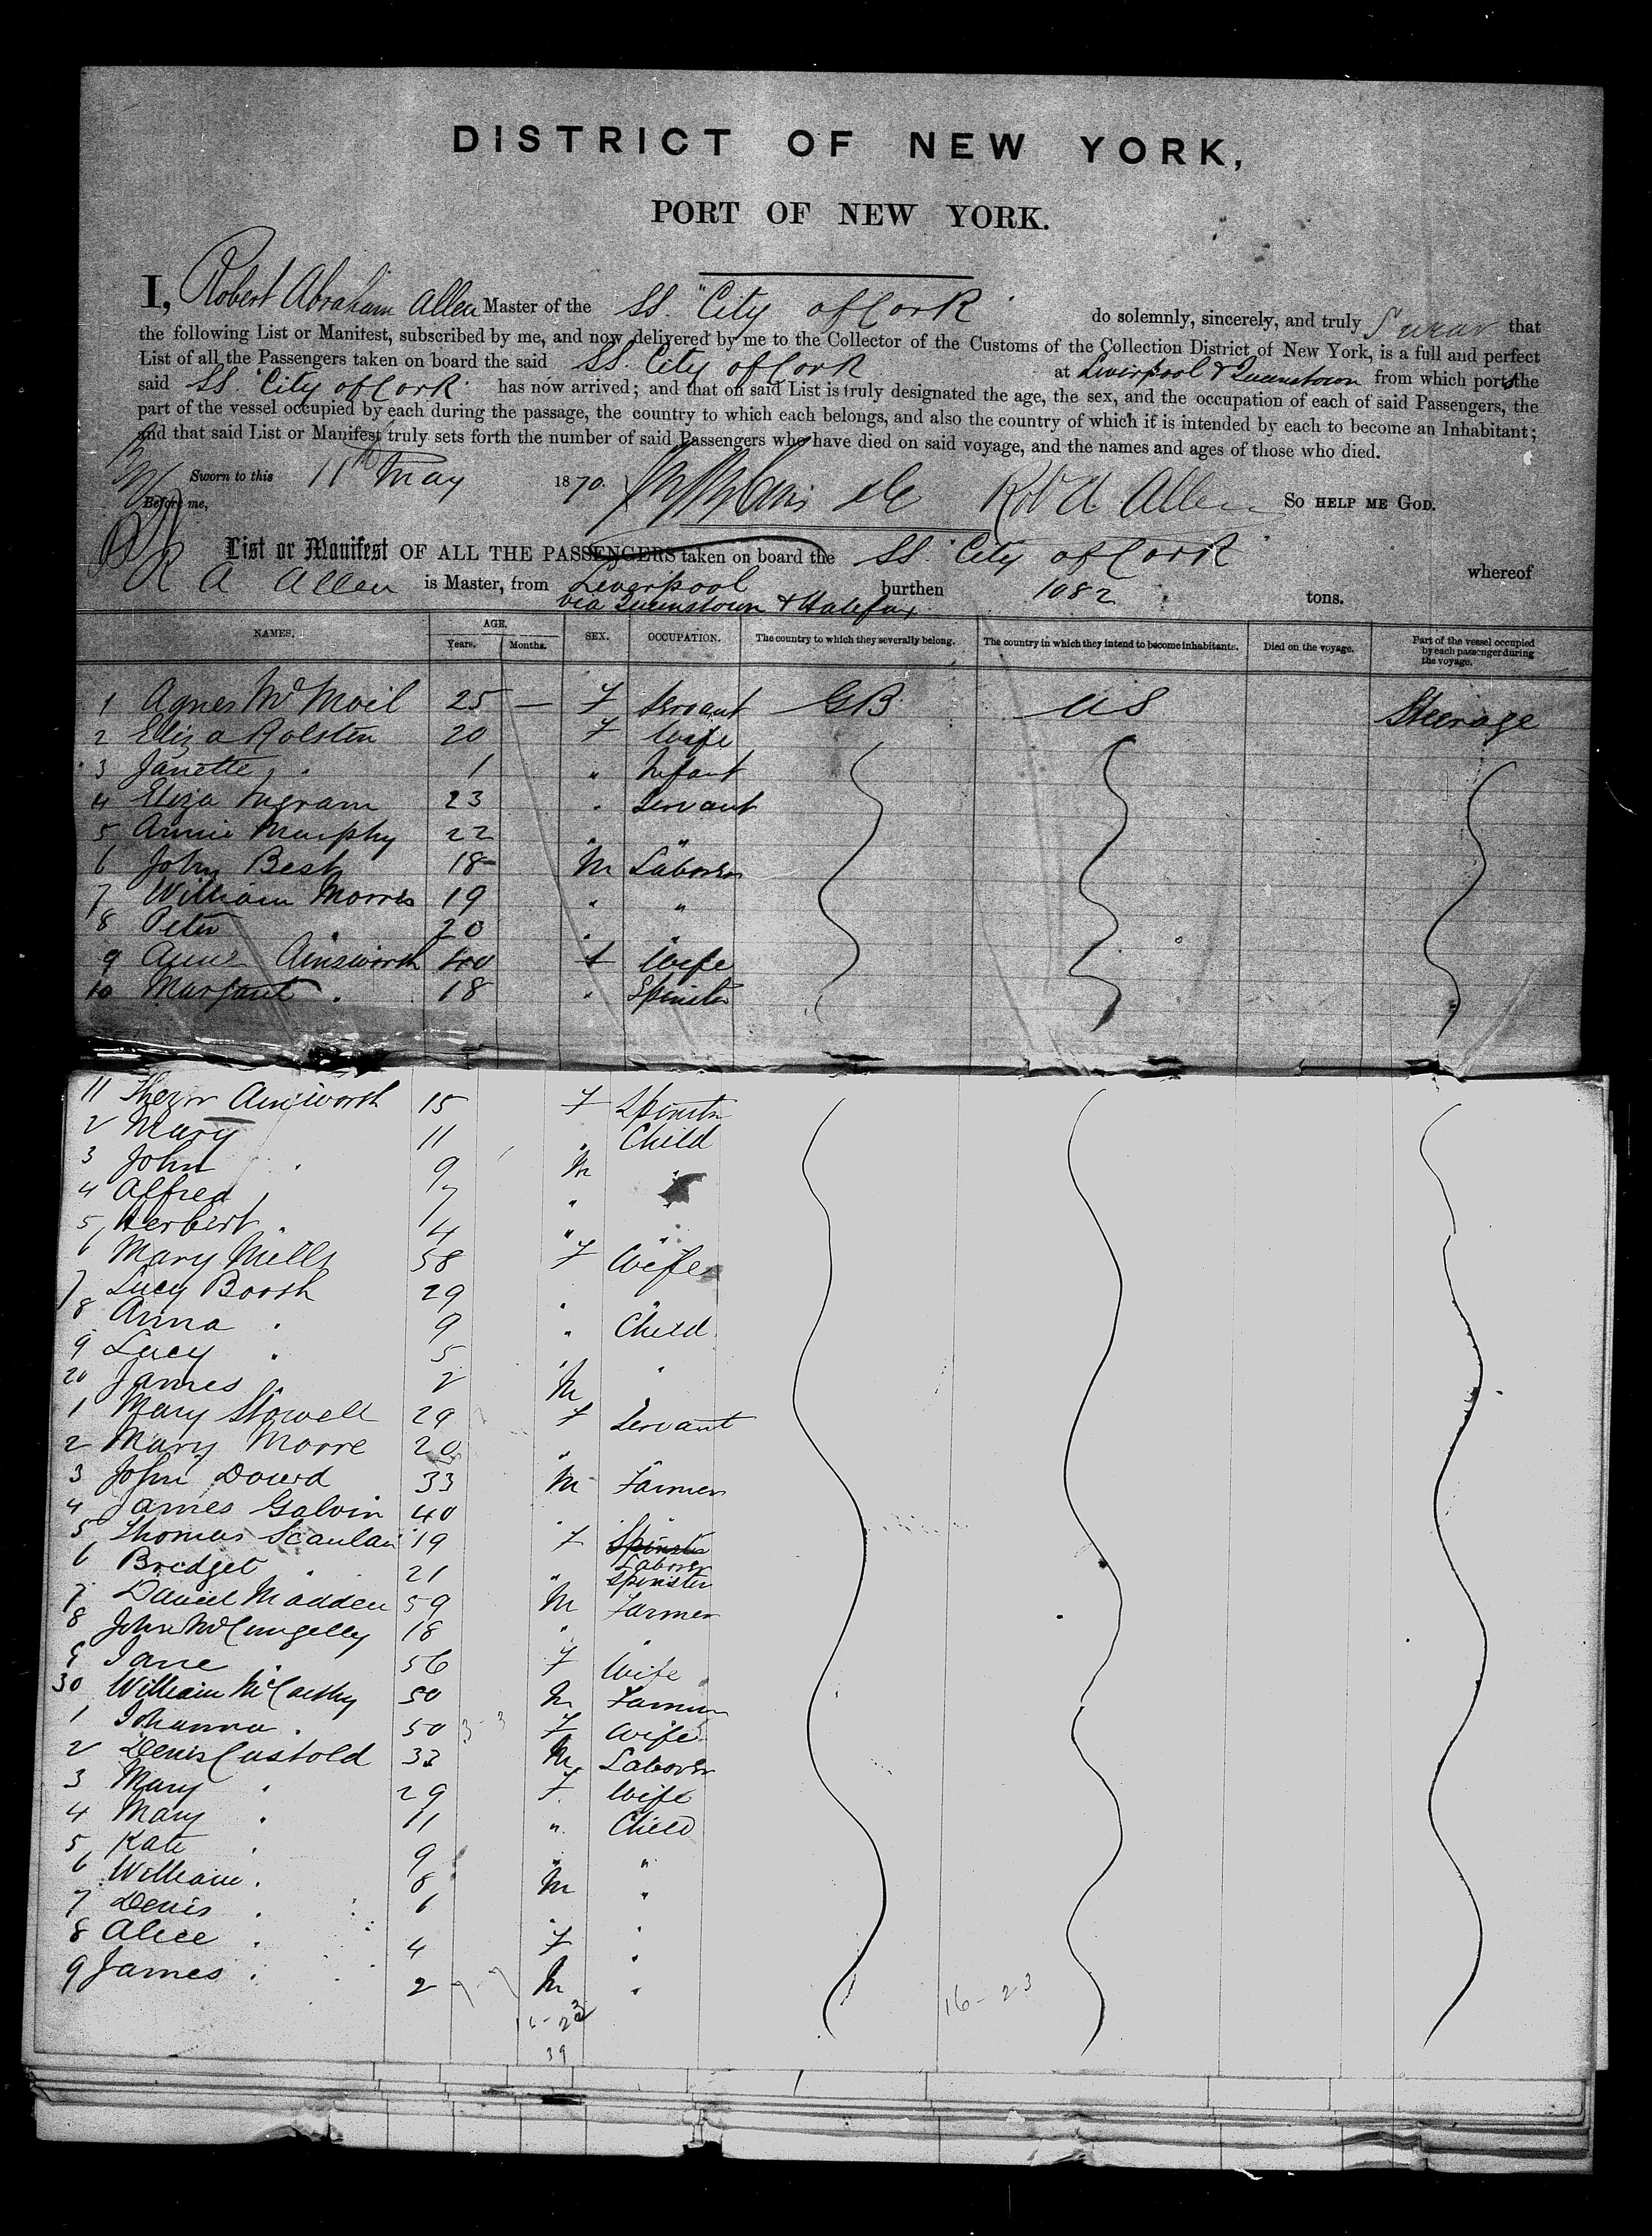 DISTRICT OF NEW YORK,
PORT OF NEW YORK.
I, Robert Abraham Allen Master of the SS. "City of Cork" do solemnly, sincerely, and truly Swear that
the following List or Manifest, subscribed by me, and now delivered by me to the Collector of the Customs of the Collection District of New York, is a full and perfect
List of all the Passengers taken on board the said SS. City of Cork at Liverpool & Queenstown from which ports the
said SS. "City of Cork" has now arrived; and that on said List is truly designated the age, the sex, and the occupation of each of said Passengers, the
part of the vessel occupied by each during the passage, the country to which each belongs, and also the country of which it is intended by each to become an Inhabitant;
and that said List or Manifest truly sets forth the number of said Passengers who have died on said voyage, and the names and ages of those who died.
Sworn to this 11th May 1870. Robt A Allen So HELP ME GOD.
Before me,
List or Manifest OF ALL THE PASSENGERS taken on board the SS "City of Cork" whereof
R A Allen is Master, from Liverpool burthen 1082 tons.
via Queenstown & Halifax
NAMES. AGE. Years. Months. SEX. OCCUPATION. The country to which they severally belong. The country in which they intend to become inhabitants. Died on the voyage. Part of the vessel occupied by each passenger during the voyage.
1 Agnes McMoil 25 — F Servant GB US Steerage
2 Eliza Rolsten 20 F Wife
3 Janette " 1 " Infant
4 Eliza Ingram 23 " Servant
5 Annie Murphy 22 " "
6 John Best 18 M Laborer
7 William Morris 19 " "
8 Peter " 20 " "
9 Ainsworth 40 F Wife
10 Margaret " 18 " Spinster
11 Ainsworth 15 F Spinster
2 Mary 11 " Child
3 John " 9 M "
4 Alfred " 7 "
5 Herbert " 4 " "
6 Mary Mills 58 F Wife
7 Lucy Booth 29 " "
8 Anna " 9 " Child
9 Lucy " 5 " "
20 James " 2 M "
1 Mary Stowell 29 F Servant
2 Mary Moore 20 "
3 John Dowd 33 M Farmer
4 James Galvin 40 " "
5 Thomas Scanlan 19 F Spinster Laborer
6 Bridget " 21 " Spinster
7 Daniel Madden 59 M Farmer
8 John 18 " "
9 Jane " 56 F Wife
30 William McCarthy 50 M Farmer
1 Johanna " 50 F Wife
2 Denis Custold 33 M Laborer
3 Mary " 29 F. Wife
4 Mary " 11 " Child
5 Kate " 9 " "
6 William " 8 M "
7 Denis " 6 " "
8 Alice " 4 F "
9 James " 2 M "
16-23
16-23
39